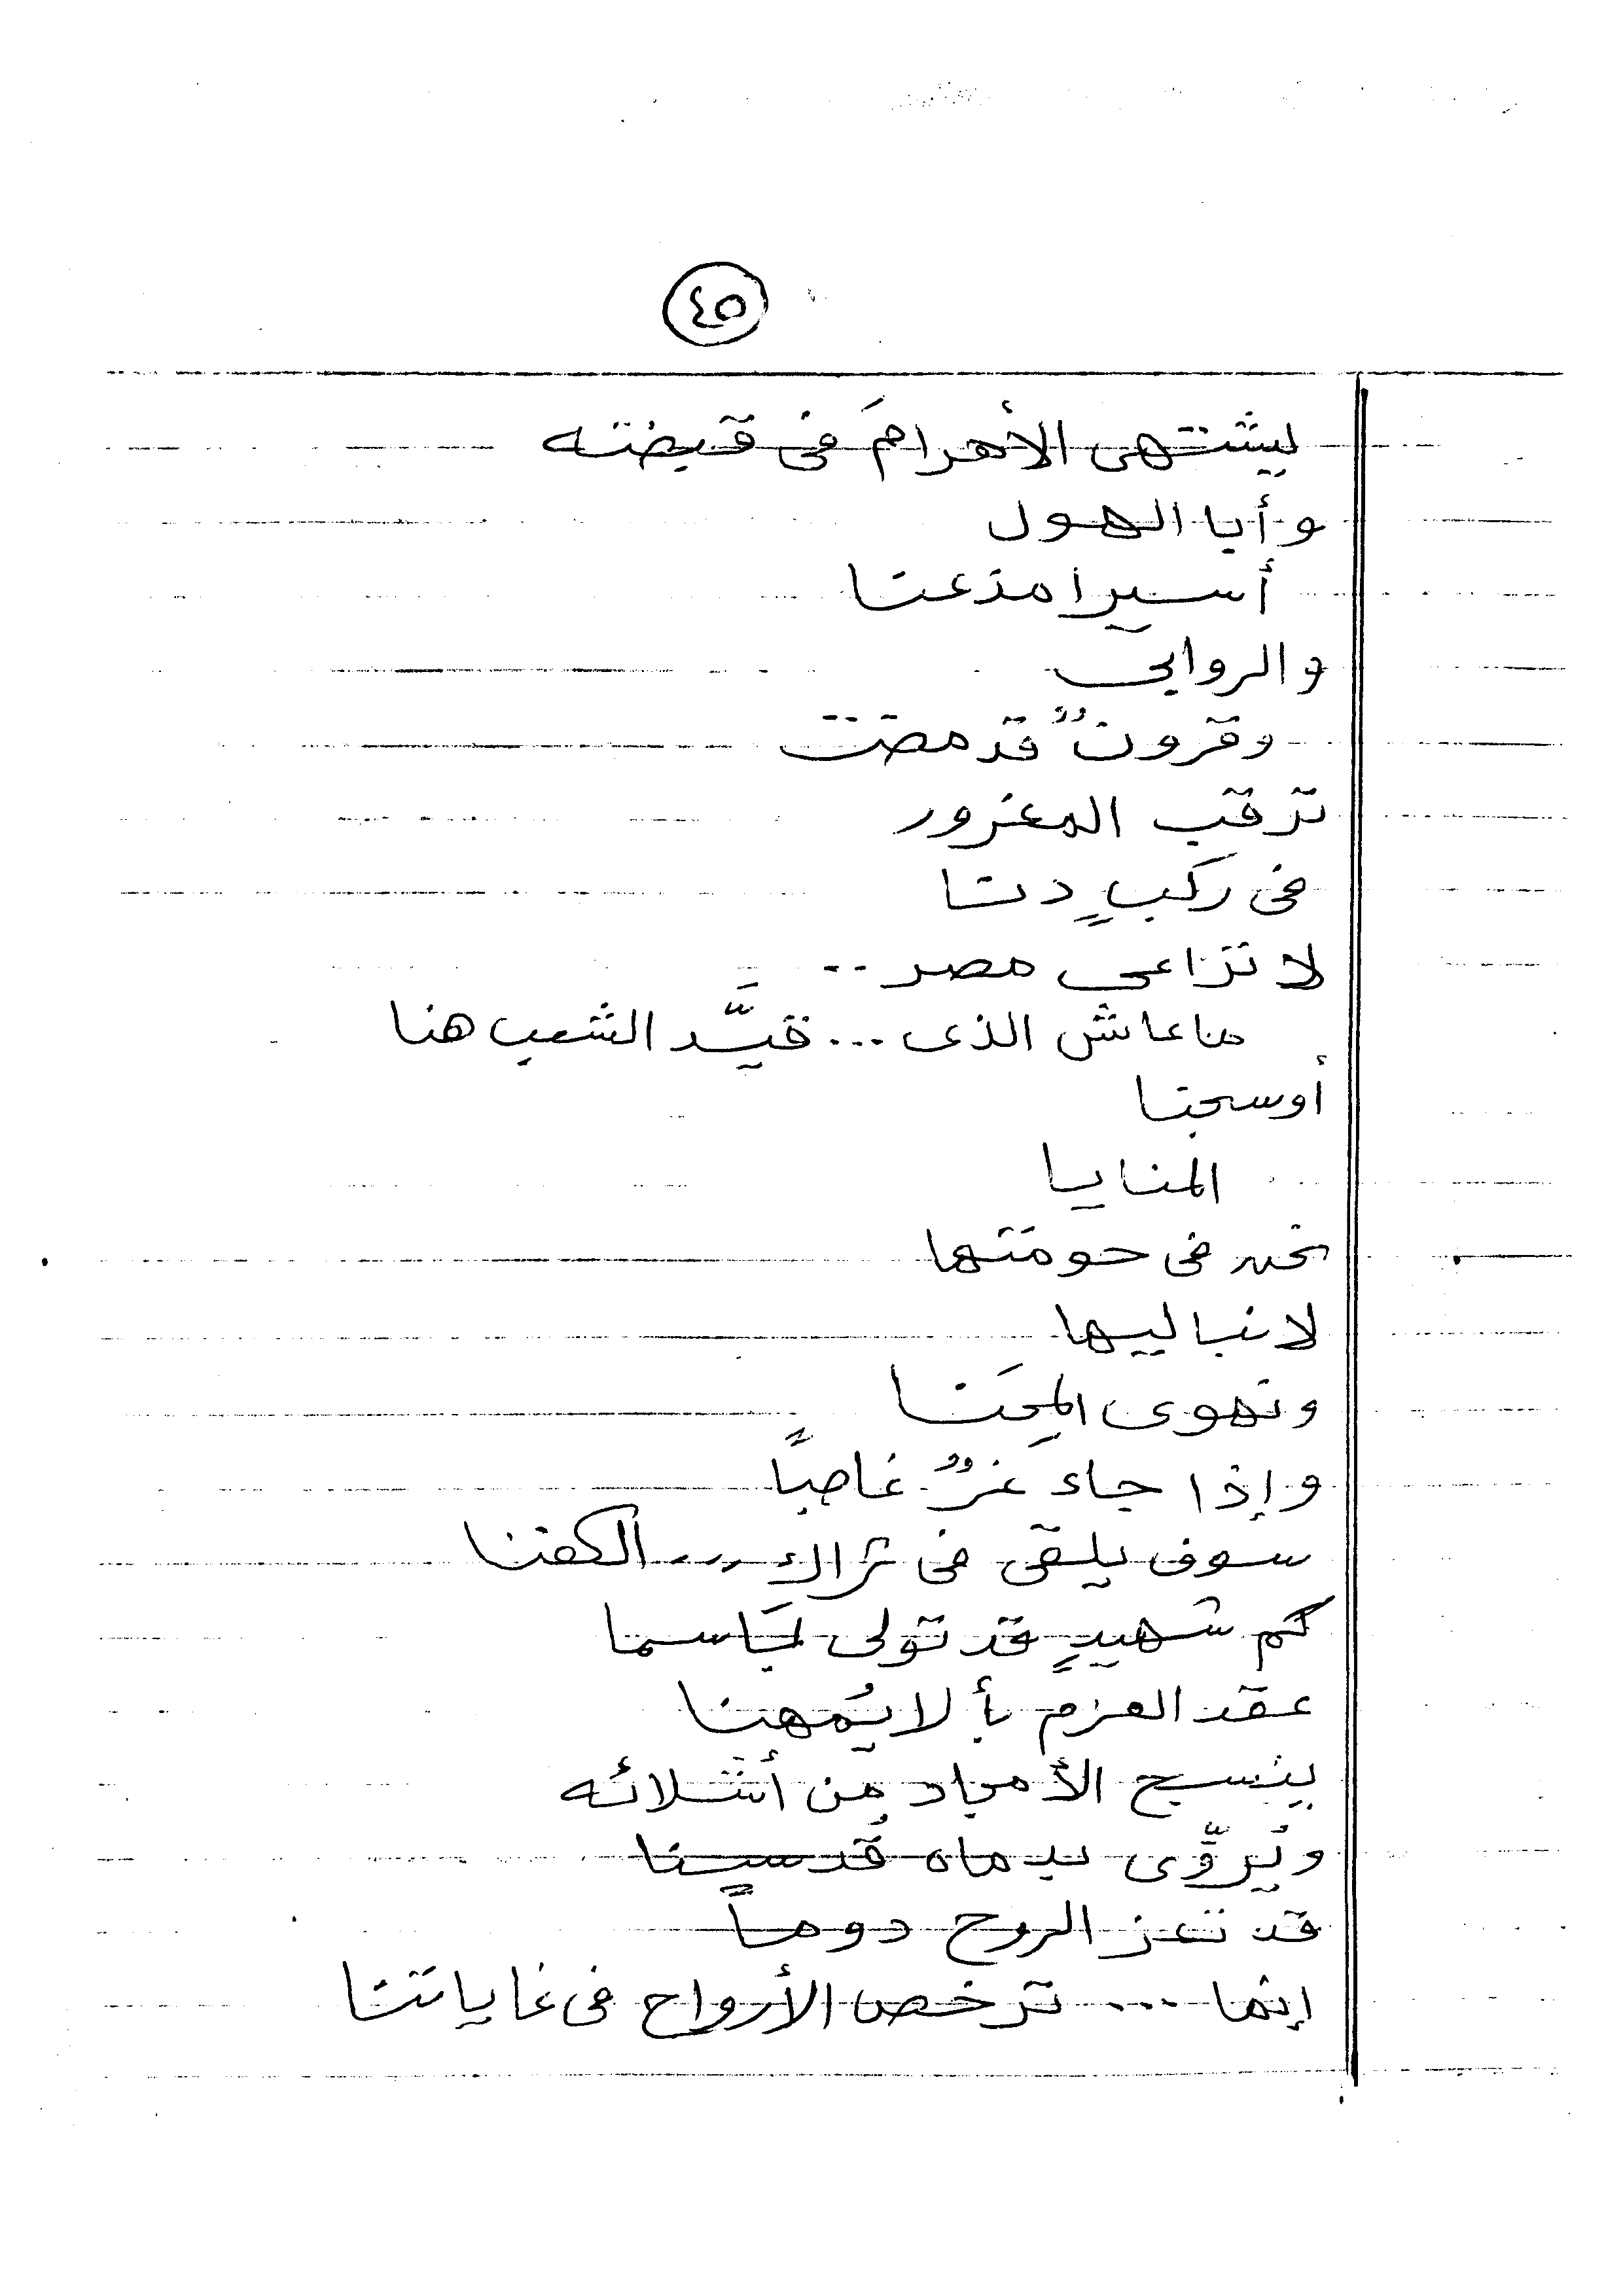 ٤٥
يشتهى الأهرامَ فى قبضته
وأبا الهول
أسيرا مذعنا
والروابى
وقرونٌ قد مضت
ترقب المغرور
فى ركبٍ دنا
لا تراعى مصر ..
ما عاش الذى ... قيَّد الشعب هنا
أو سجنا
المنايا
نحن فى حومتها
لا نباليها
ونهوى المِحَنا
وإذا جاء غرٌ غاصبًا
سوف يلقى فى ثراك ... الكفنا
كم شهيدٍ قد تولى باسما
عقد العزم بألا يُمهنا
ينسج الأمجاد من أشلائه
ويُروِّى بدماه قُدسنا
قد تعز الروح دوماً
إنما ... ترخص الأرواح فى غاياتنا